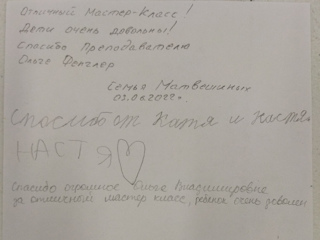 Отличный Мастер-Класс!
Дети очень довольны!
Спасибо Преподавателю
Ольге Фенглер
Семья Матвешиных
03.06.2022г.
Спасиб от Катя и Настя.
НАСТЯ
Спасибо огромное Ольге Владимировне
за отличный мастер класс, ребёнок очень доволен